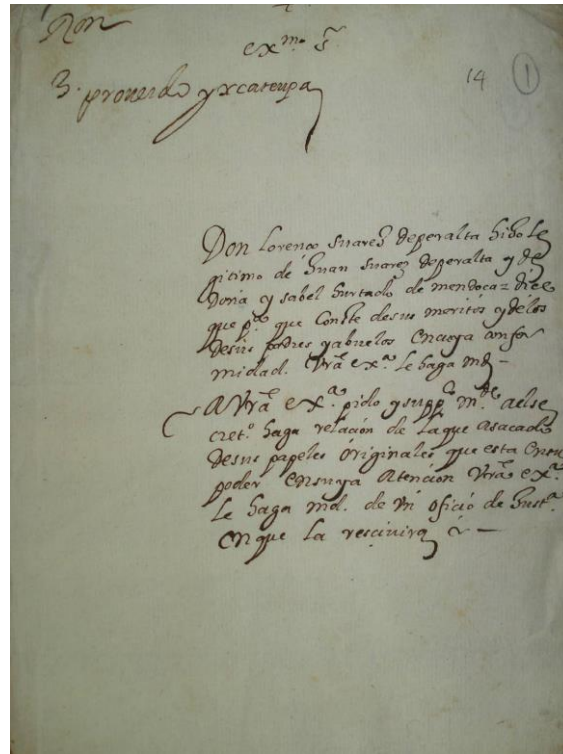 Ron
exmo sr
14 1
3. proueido yxcateupa
Don Lorenco Suarez deperalta hiɉo Le
gitimo de Juan Suarez deperalta y de
Doña ysabel hurtado de mendoca = dice
que pa. que Conste desus meritos ydelos
desus padres yabuelos Encuya confor
midad. Vra exa. le haga md –
A Vra exa. pido ysuppco mde. aelse
creto. haga relación de Laque asacado
Desus papeles originales que esta ensu
poder Ensuya Atención Vra exa.
Le haga md. de Un oficio de Justa.
En que La rescivira &a –